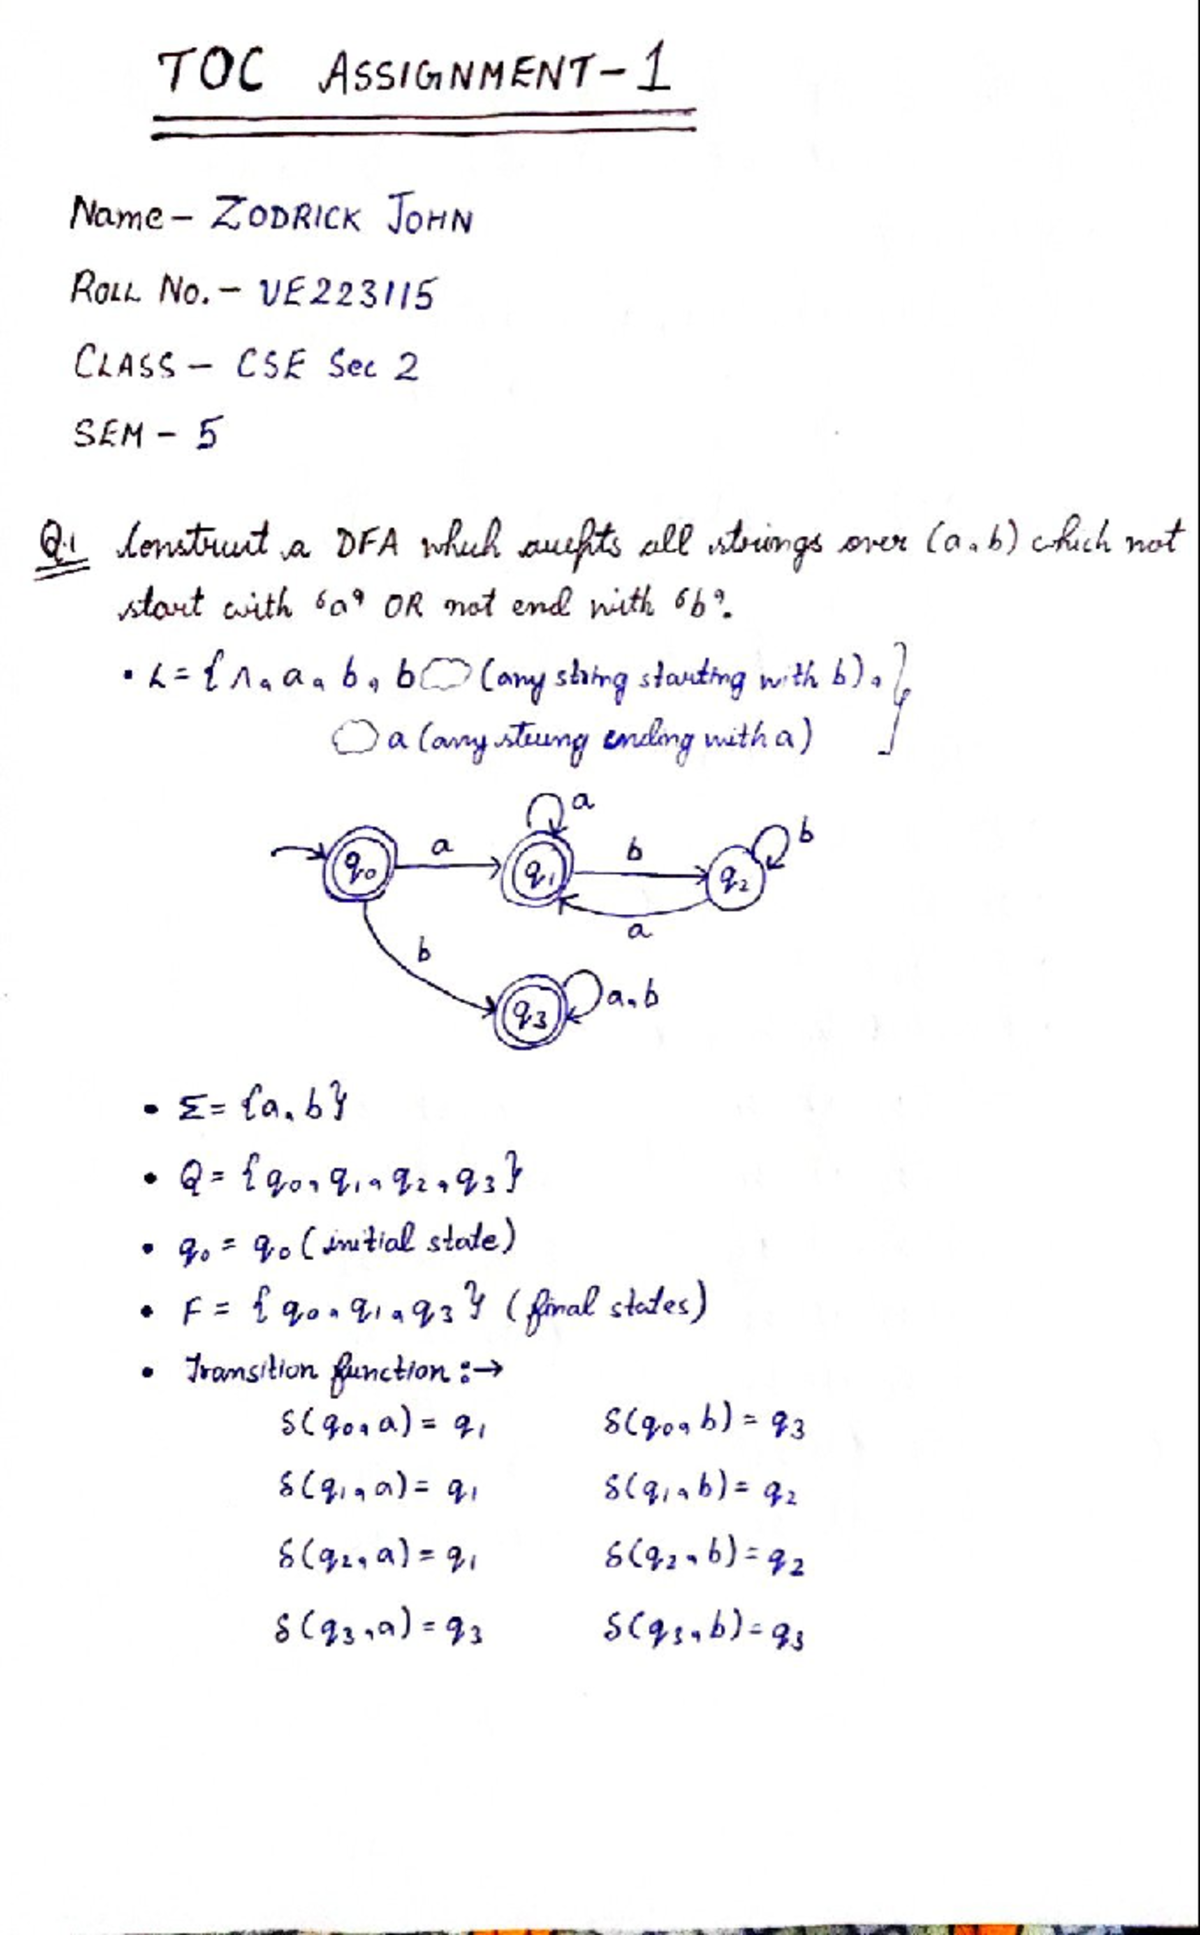 TOC ASSIGNMENT-1
Name- ZODRICK JOHN
ROLL No.- UE223115
CLASS- CSE Sec 2
SEM- 5
Q.1 Construct a DFA which accepts all strings over (a,b) which not
start with 'a' OR not end with 'b'.
• L = { Λ, a, b, b (any string starting with b),
a (any string ending with a) }
a
q0 a q1 b q2 b
a
b
q3 a,b
• Σ = {a, b}
• Q = {q0, q1, q2, q3}
• q0 = q0 (initial state)
• F = {q0, q1, q3} (final states)
• Transition function :→
δ(q0, a) = q1 δ(q0, b) = q3
δ(q1, a) = q1 δ(q1, b) = q2
δ(q2, a) = q1 δ(q2, b) = q2
δ(q3, a) = q3 δ(q3, b) = q3